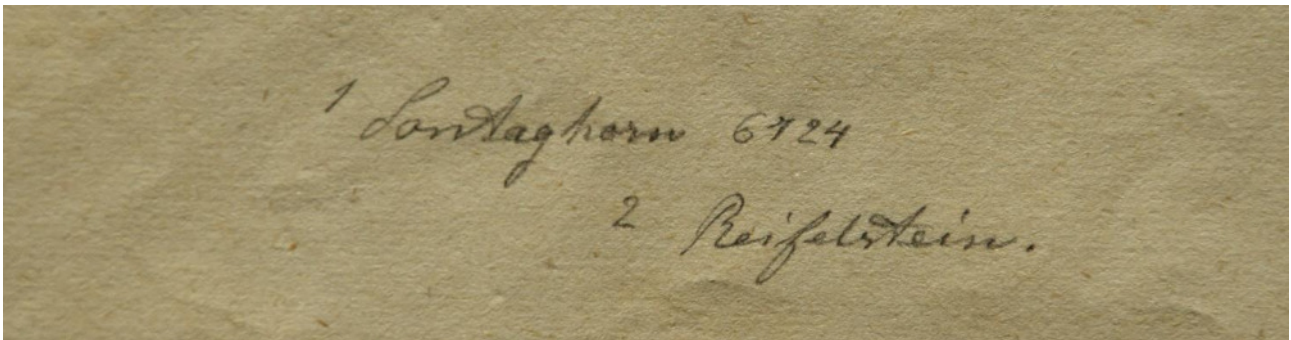 1 Sontaghorn 6124
2 Reifelstein.